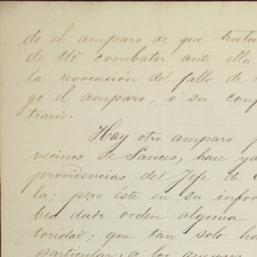 do el amparo de que trata
de combater ante ella
la revocación del fallo de
gó el amparo, ó su con
trario.
Hay otro amparo
vecinos de Sauces, hace ya
providencias del Jefe de
la; pero éste en su infor
dado orden alguna
toridad; que tan solo ha
particular, á los